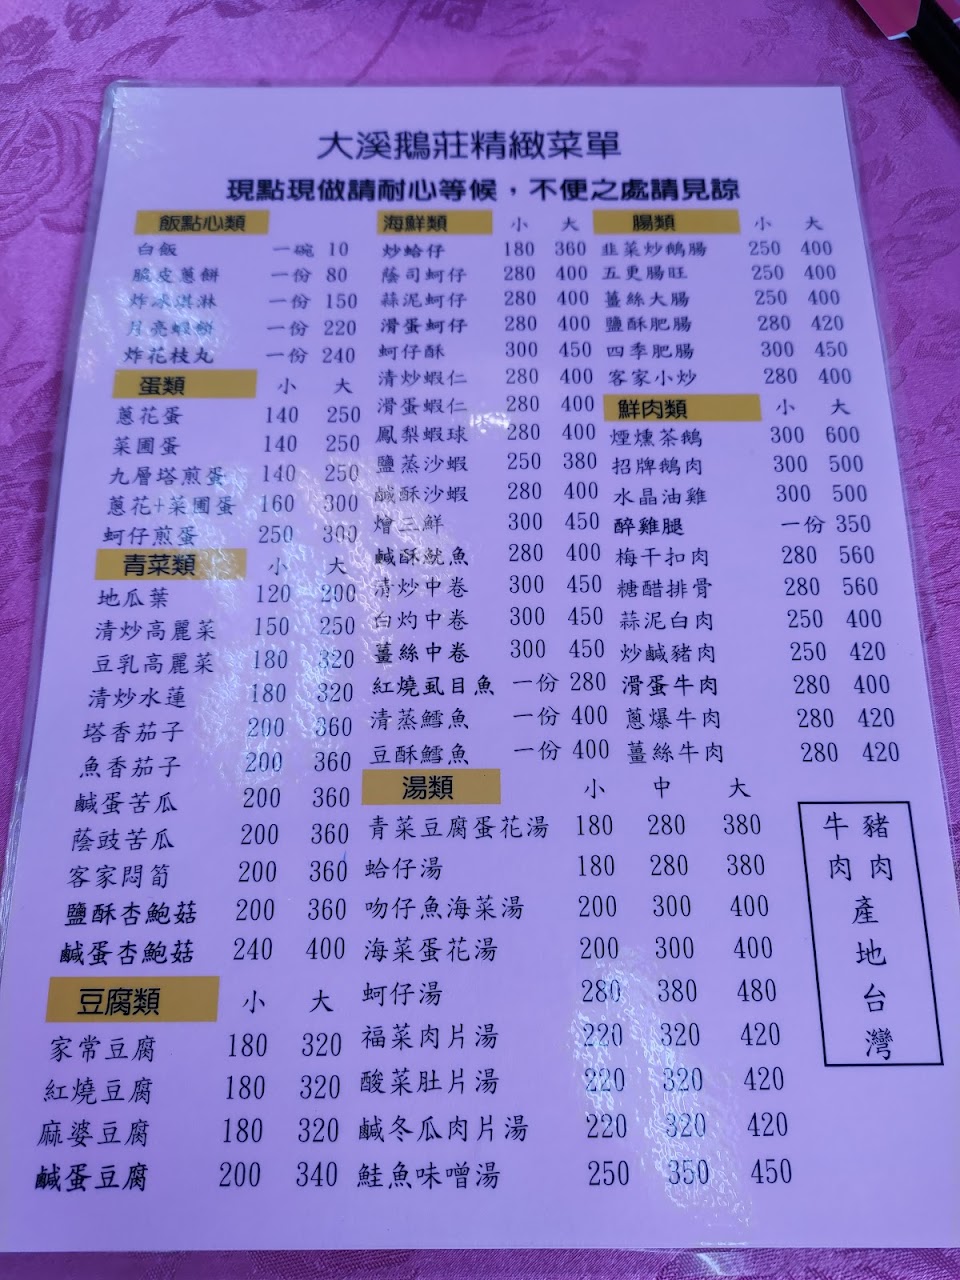 大溪鵝莊精緻菜單
現點現做請耐心等候，不便之處請見諒
飯點心類
白飯 一碗 10
脆皮蔥餅 一份 80
炸冰淇淋 一份 150
月亮蝦餅 一份 220
炸花枝丸 一份 240
蛋類 小 大
蔥花蛋 140 250
菜圃蛋 140 250
九層塔煎蛋 140 250
蔥花+菜圃蛋 160 300
蚵仔煎蛋 250 300
青菜類 小 大
地瓜葉 120 200
清炒高麗菜 150 250
豆乳高麗菜 180 320
清炒水蓮 180 320
塔香茄子 200 360
魚香茄子 200 360
鹹蛋苦瓜 200 360
蔭豉苦瓜 200 360
客家悶筍 200 360
鹽酥杏鮑菇 200 360
鹹蛋杏鮑菇 240 400
豆腐類 小 大
家常豆腐 180 320
紅燒豆腐 180 320
麻婆豆腐 180 320
鹹蛋豆腐 200 340
海鮮類 小 大
炒蛤仔 180 360
蔭司蚵仔 280 400
蒜泥蚵仔 280 400
滑蛋蚵仔 280 400
蚵仔酥 300 450
清炒蝦仁 280 400
滑蛋蝦仁 280 400
鳳梨蝦球 280 400
鹽蒸沙蝦 250 380
鹹酥沙蝦 280 400
燴三鮮 300 450
鹹酥魷魚 280 400
清炒中卷 300 450
白灼中卷 300 450
薑絲中卷 300 450
紅燒虱目魚 一份 280
清蒸鱈魚 一份 400
豆酥鱈魚 一份 400
湯類 小 中 大
青菜豆腐蛋花湯 180 280 380
蛤仔湯 180 280 380
吻仔魚海菜湯 200 300 400
海菜蛋花湯 200 300 400
蚵仔湯 280 380 480
福菜肉片湯 220 320 420
酸菜肚片湯 220 320 420
鹹冬瓜肉片湯 220 320 420
鮭魚味噌湯 250 350 450
腸類 小 大
韭菜炒鵝腸 250 400
五更腸旺 250 400
薑絲大腸 250 400
鹽酥肥腸 280 420
四季肥腸 300 450
客家小炒 280 400
鮮肉類 小 大
煙燻茶鵝 300 600
招牌鵝肉 300 500
水晶油雞 300 500
醉雞腿 一份 350
梅干扣肉 280 560
糖醋排骨 280 560
蒜泥白肉 250 400
炒鹹豬肉 250 420
滑蛋牛肉 280 400
蔥爆牛肉 280 420
薑絲牛肉 280 420
豬肉
牛肉
產地台灣